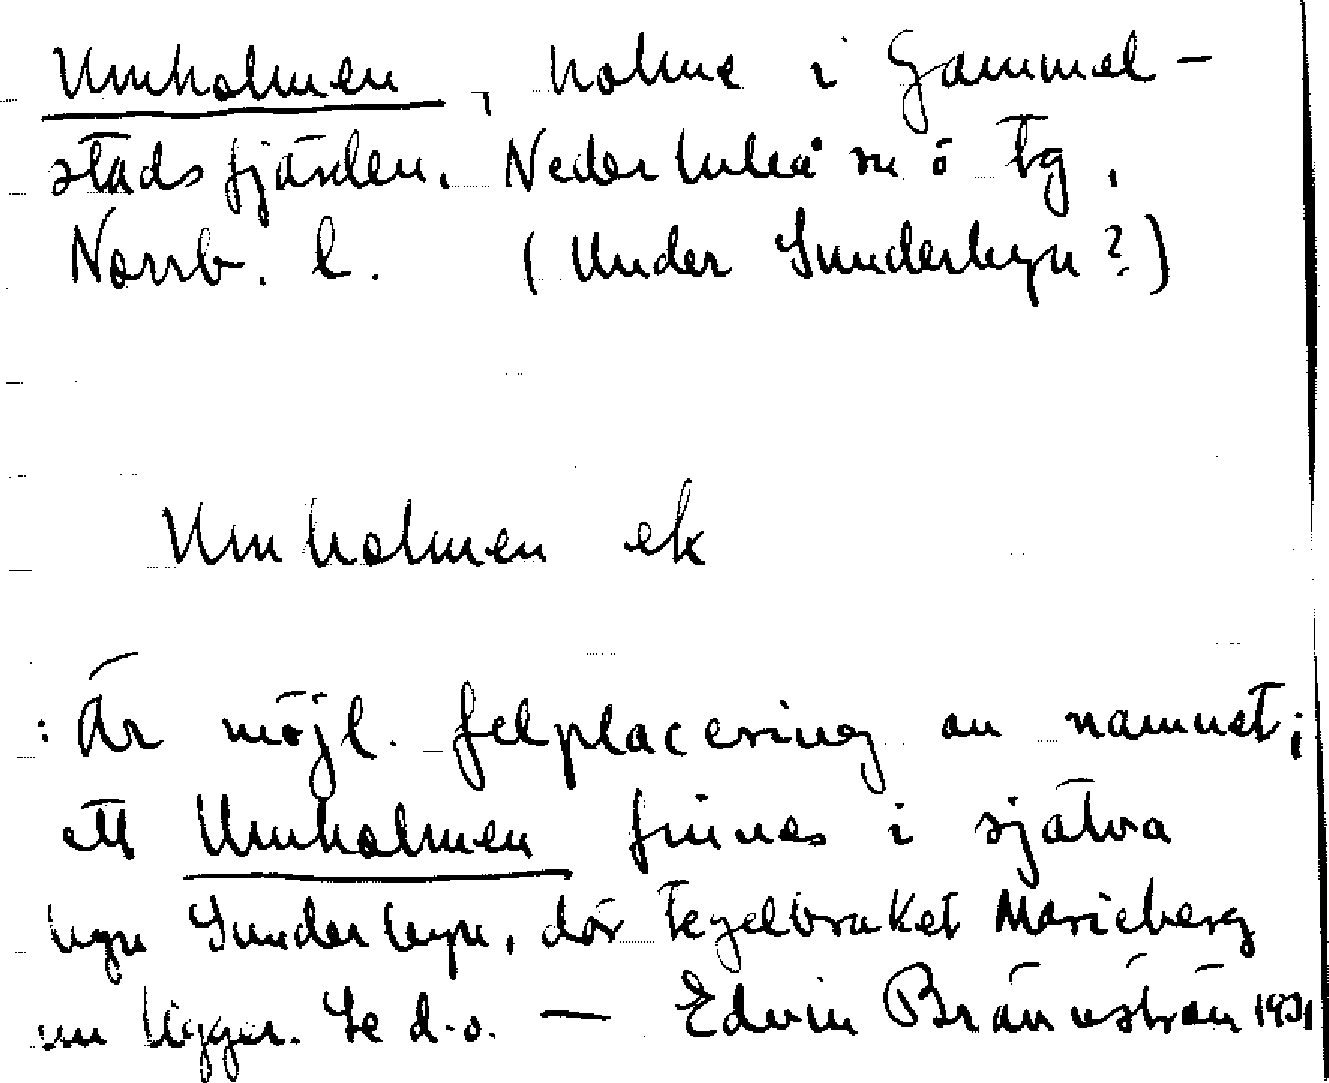 Umholmen, holme i Gammel-
stadsfjärden. Nederluleå sn ö Tg,
Norrb. l. (Under Sunderbyn?)
Umholmen ek
: Är möjl. felplacering av namnet;
ett Umholmen finnes i själva
byn Sunderbyn, där tegelbruket Marieberg
nu ligger. Se d.o. — Edvin Brännström